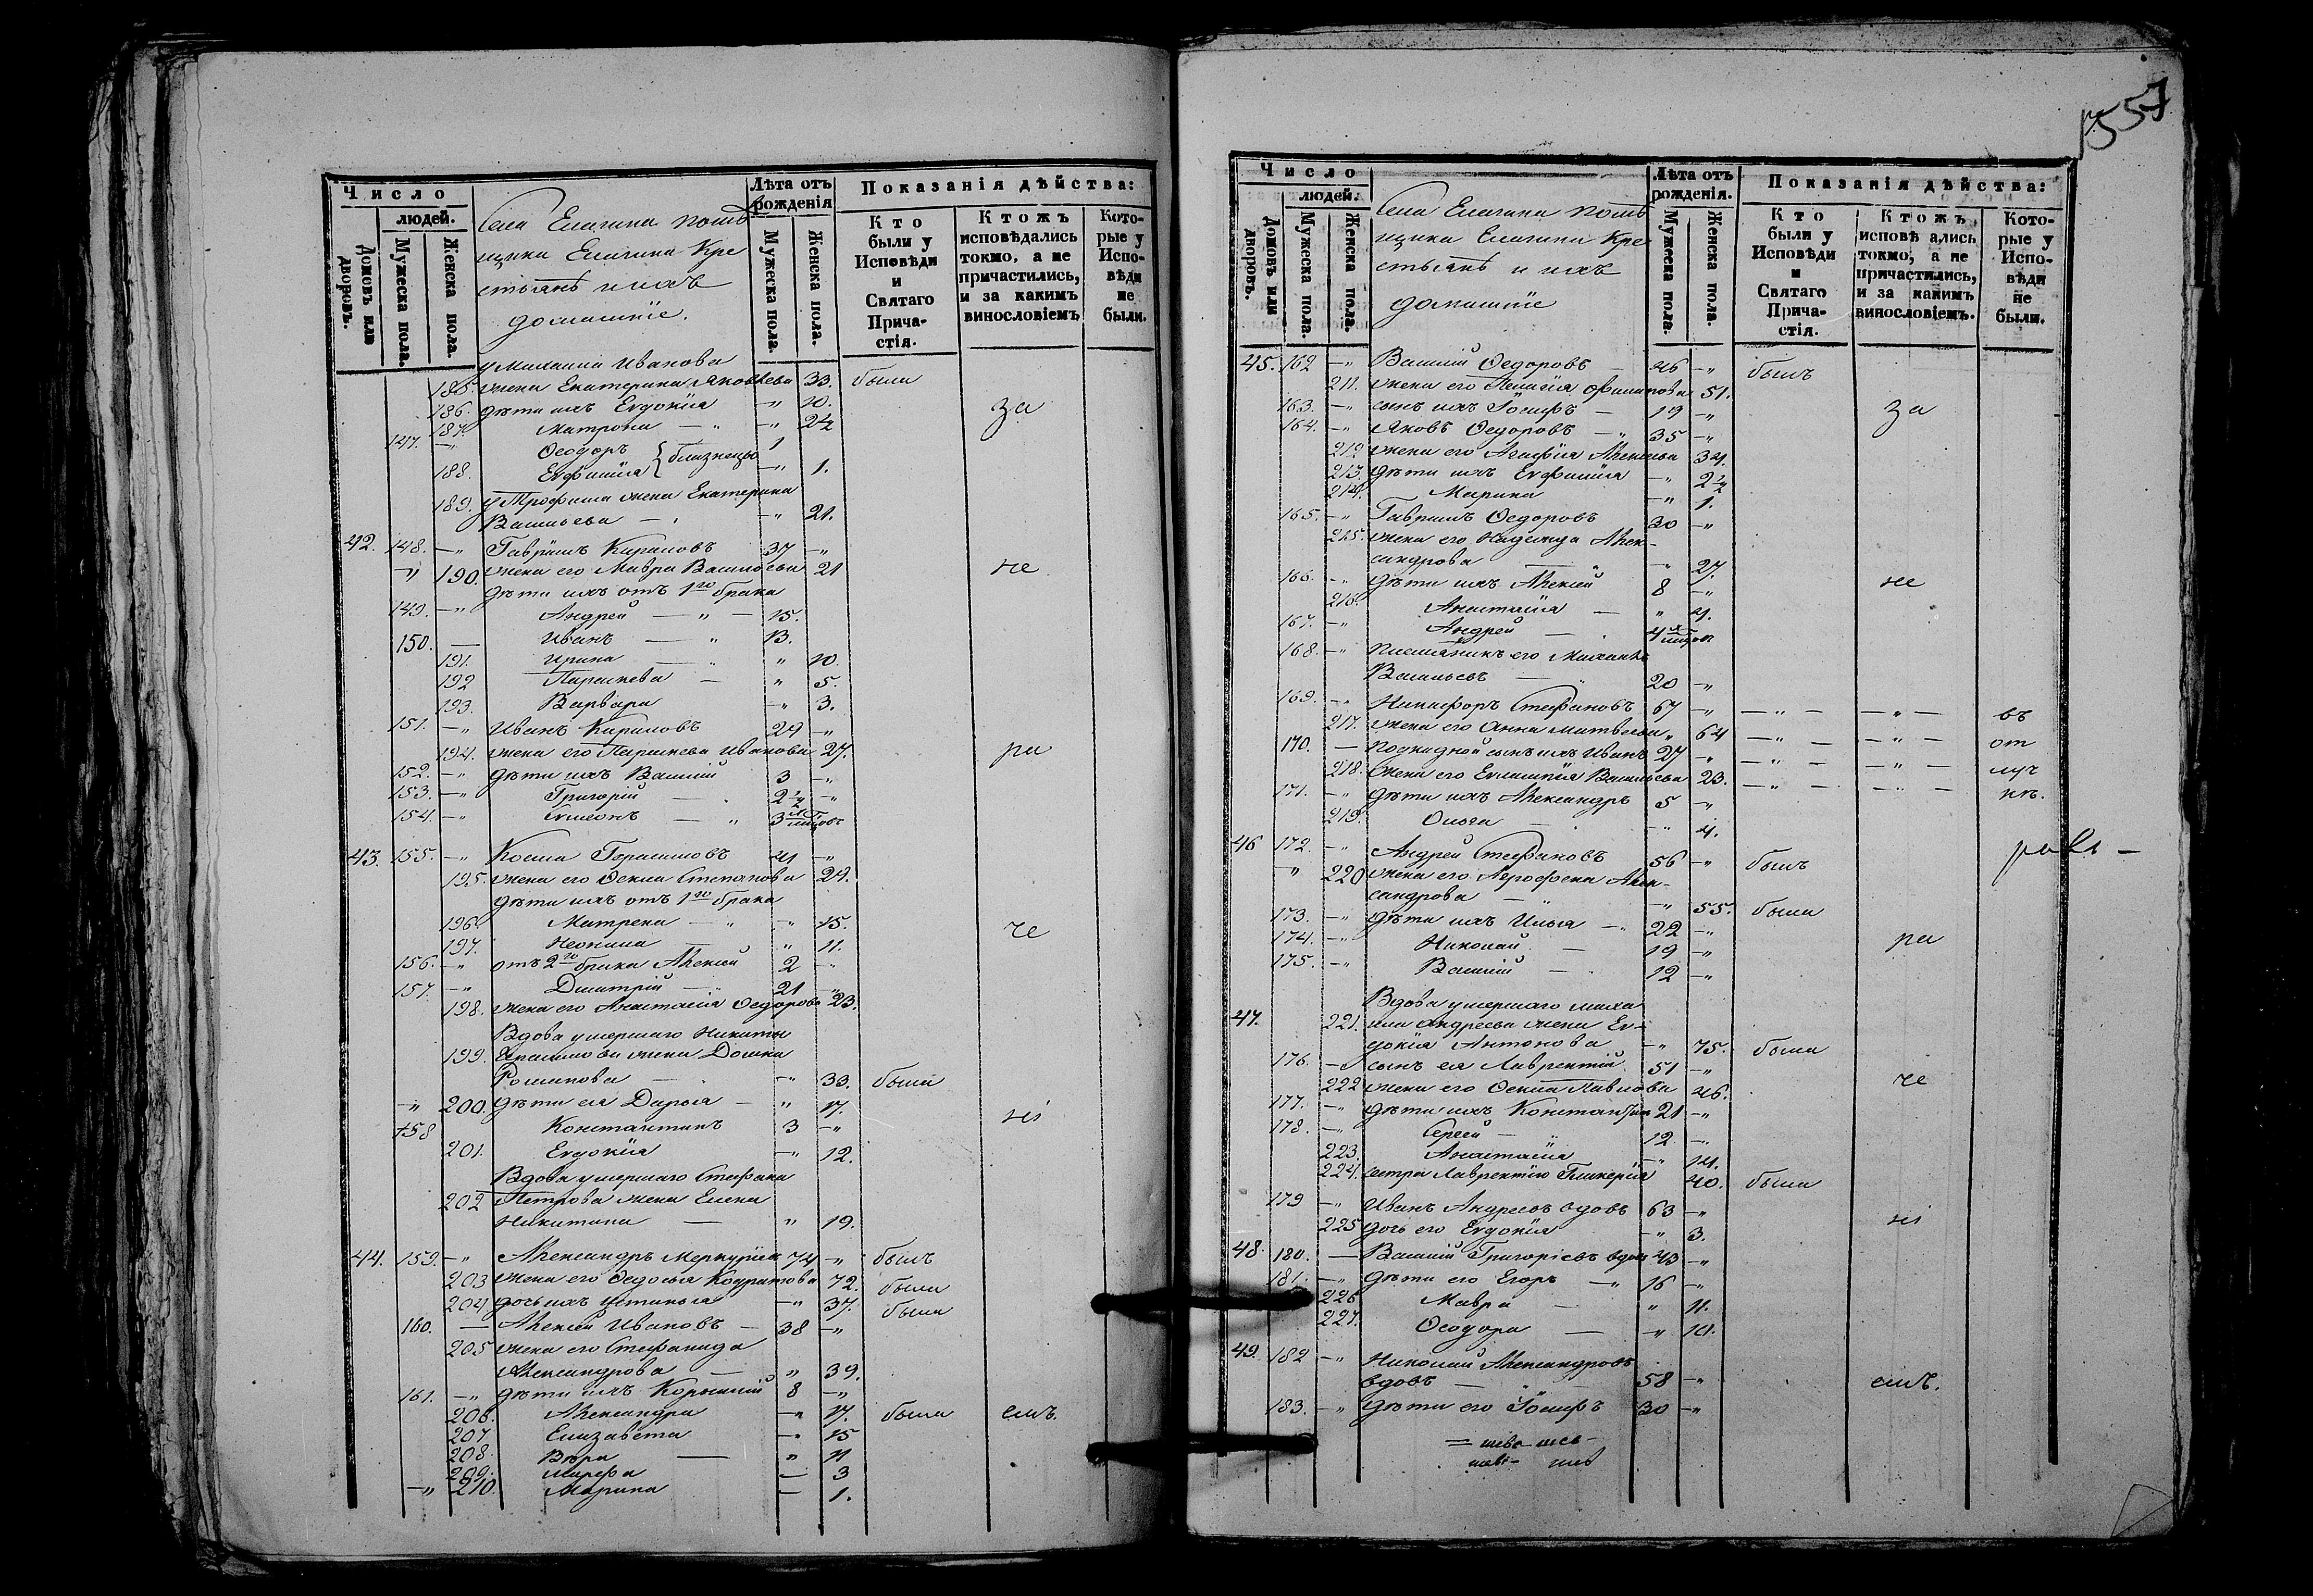 Число
людей.
Домовъ или дворовъ.
Мужеска пола.
Женска пола.
Села Елагина помѣ
щика Елагина Кре
стьянѣ и ихъ
домашніе.
Лѣта отъ рожденія
Мужеска пола.
Женска пола.
Показанія дѣйства:
Кто были у Исповѣди и Святаго Прича-стія.
Ктожъ исповѣдались токмо, а не причастились, и за какимъ винословіемъ
Кото-рые у Испо-вѣди не были.
у Михаила Иванова
185. жена Екатерина Яковлева 33. была
186. дѣти ихъ Евдокія —" 10. за
187. Матрона —" —" 2½
147. —" Ѳеодоръ } близнецы 1
188. Евфимія —" 1.
189. у Трофима жена Екатерина
Васильева — —" 21.
42. 148. —" Гавріилъ Кириловъ 37 —"
—" 190. жена его Мавра Васильева 21 не
дѣти ихъ отъ 1го брака
149. —" Андрей —"— 15.
150. — Иванъ —" 13.
191. Ирина — " 10.
192 Параскева — " 5.
193. Варвара —" 3.
151. —" Иванъ Кириловъ 29 —"
194. жена его Параскева Иванова 27. ра
152. —" дѣти ихъ Василій 3 —"
153. —" Григорій — 2½ —"
154. —" Симеонъ —" 3 мѣсцовъ
43. 155. —" Косма Герасимовъ 41 —"
195. жена его Ѳекла Степанова 29.
дѣти ихъ отъ 1го брака
196. Матрена —" —" 15.
197. Неонила — " 11. че
156. —" отъ 2го брака Алексій 2 —"
157. —" Димитрій —" 21 —"
198. жена его Анастасія Ѳедорова 23.
Вдова умершаго Никиты
199. Герасимова жена Домна
Романова — —" 33. была
—" 200. дѣти ея Дарья — " 17.
158 Константинъ 3 —" ні
201. Евдокія —" 12.
Вдова умершаго Стефана
202 Петрова жена Елена
Никитина — " 19.
44. 159. —" Александръ Меркуріевъ 74 —" былъ
203 жена его Ѳедосья Кодратова 72. была
204 дочь ихъ Устинья —" 37. была
160. — Алексій Ивановъ — 38 —"
205 жена его Стефанида
Александрова — " 39.
161. —" дѣти ихъ Корнилій 8 —"
206. Александра —" 17. была емъ.
207 Елизавета —" 15
208. Вѣра — " 11
209. Марфа — 3
—" 210. Марина — 1.
557
Число
людей.
Домовъ или дворовъ.
Мужеска пола.
Женска пола.
Села Елагина помѣ
щика Елагина Кре
стьянѣ и ихъ
домашніе
Лѣта отъ рожденія.
Мужеска пола.
Женска пола.
Показанія дѣйства:
Кто были у Исповѣди и Святаго Прича-стія.
Ктожъ исповѣ ались токмо, а не причастились, и за какимъ винословіемъ.
Кото-рые у Испо-вѣди не были.
45. 162 —" Василій Ѳедоровъ — 46 —" былъ
211. жена его Пелагія Филипова 51.
163. —" сынъ ихъ Іосифъ — 19 —" за
164. —" Яковъ Ѳедоровъ —" 35 —"
212 жена его Агафія Алексѣева 34.
213. дѣти ихъ Евфимія —" 2½
214. Марина —" 1.
165. —" Гавріилъ Ѳедоровъ 30 —"
215. жена его Надежда Алек-
сандрова " —" 27.
166. —" дѣти ихъ Алексій 8 —" не
216. Анастасія — " 4.
167. —" Андрей — 4 мѣсцовъ
168. —" Племянникъ его Михаилъ
Васильевъ —" 20 —"
169. —" Никифоръ Стефановъ 67 —" —"— —"— въ
217. жена его Анна Матвѣева " 64 —"— —"— от
170. — подкидной сынъ ихъ Иванъ 27 —" —"— —"— луч
218. жена его Евлампія Васильева 23. —"— —"— кѣ.
171. —" дѣти ихъ Александръ 5 —"
219. Ольга — —" 4.
46 172. —" Андрей Стефановъ 56 —" былъ
" 220 жена его Агрофена Алек-
сандрова —" —" 55. была
173. —" дѣти ихъ Илья —" 22 —"
174. —" Николай — 19 —" ра
175. —" Василій — 12 —"
Вдова умершаго Миха
47. 221. ила Андреева жена Ев-
докія Антонова —" 75. была
176. — сынъ ея Лаврентій 51 —"
222 жена его Ѳекла Павлова 46. че
177. —" дѣти ихъ Константинъ 21 —"
178. —" Сергѣй —" 12 —"
223. Анастасія —" 14.
224. сестра Лаврентію Гликерія 40. была
179 —" Иванъ Андреевъ вдовъ 63 —"
225 дочь его Евдокія —" 3. ні
48. 180. — Василій Григоріевъ вдовъ 43 —"
181. —" дѣти его Егоръ —" 16 —"
226 Мавра — " 11.
227. Ѳеодора — —" 10.
49. 182 —" Николай Александровъ
вдовъ — 58 —" емъ.
183. —" дѣти его Іосифъ 30 —"